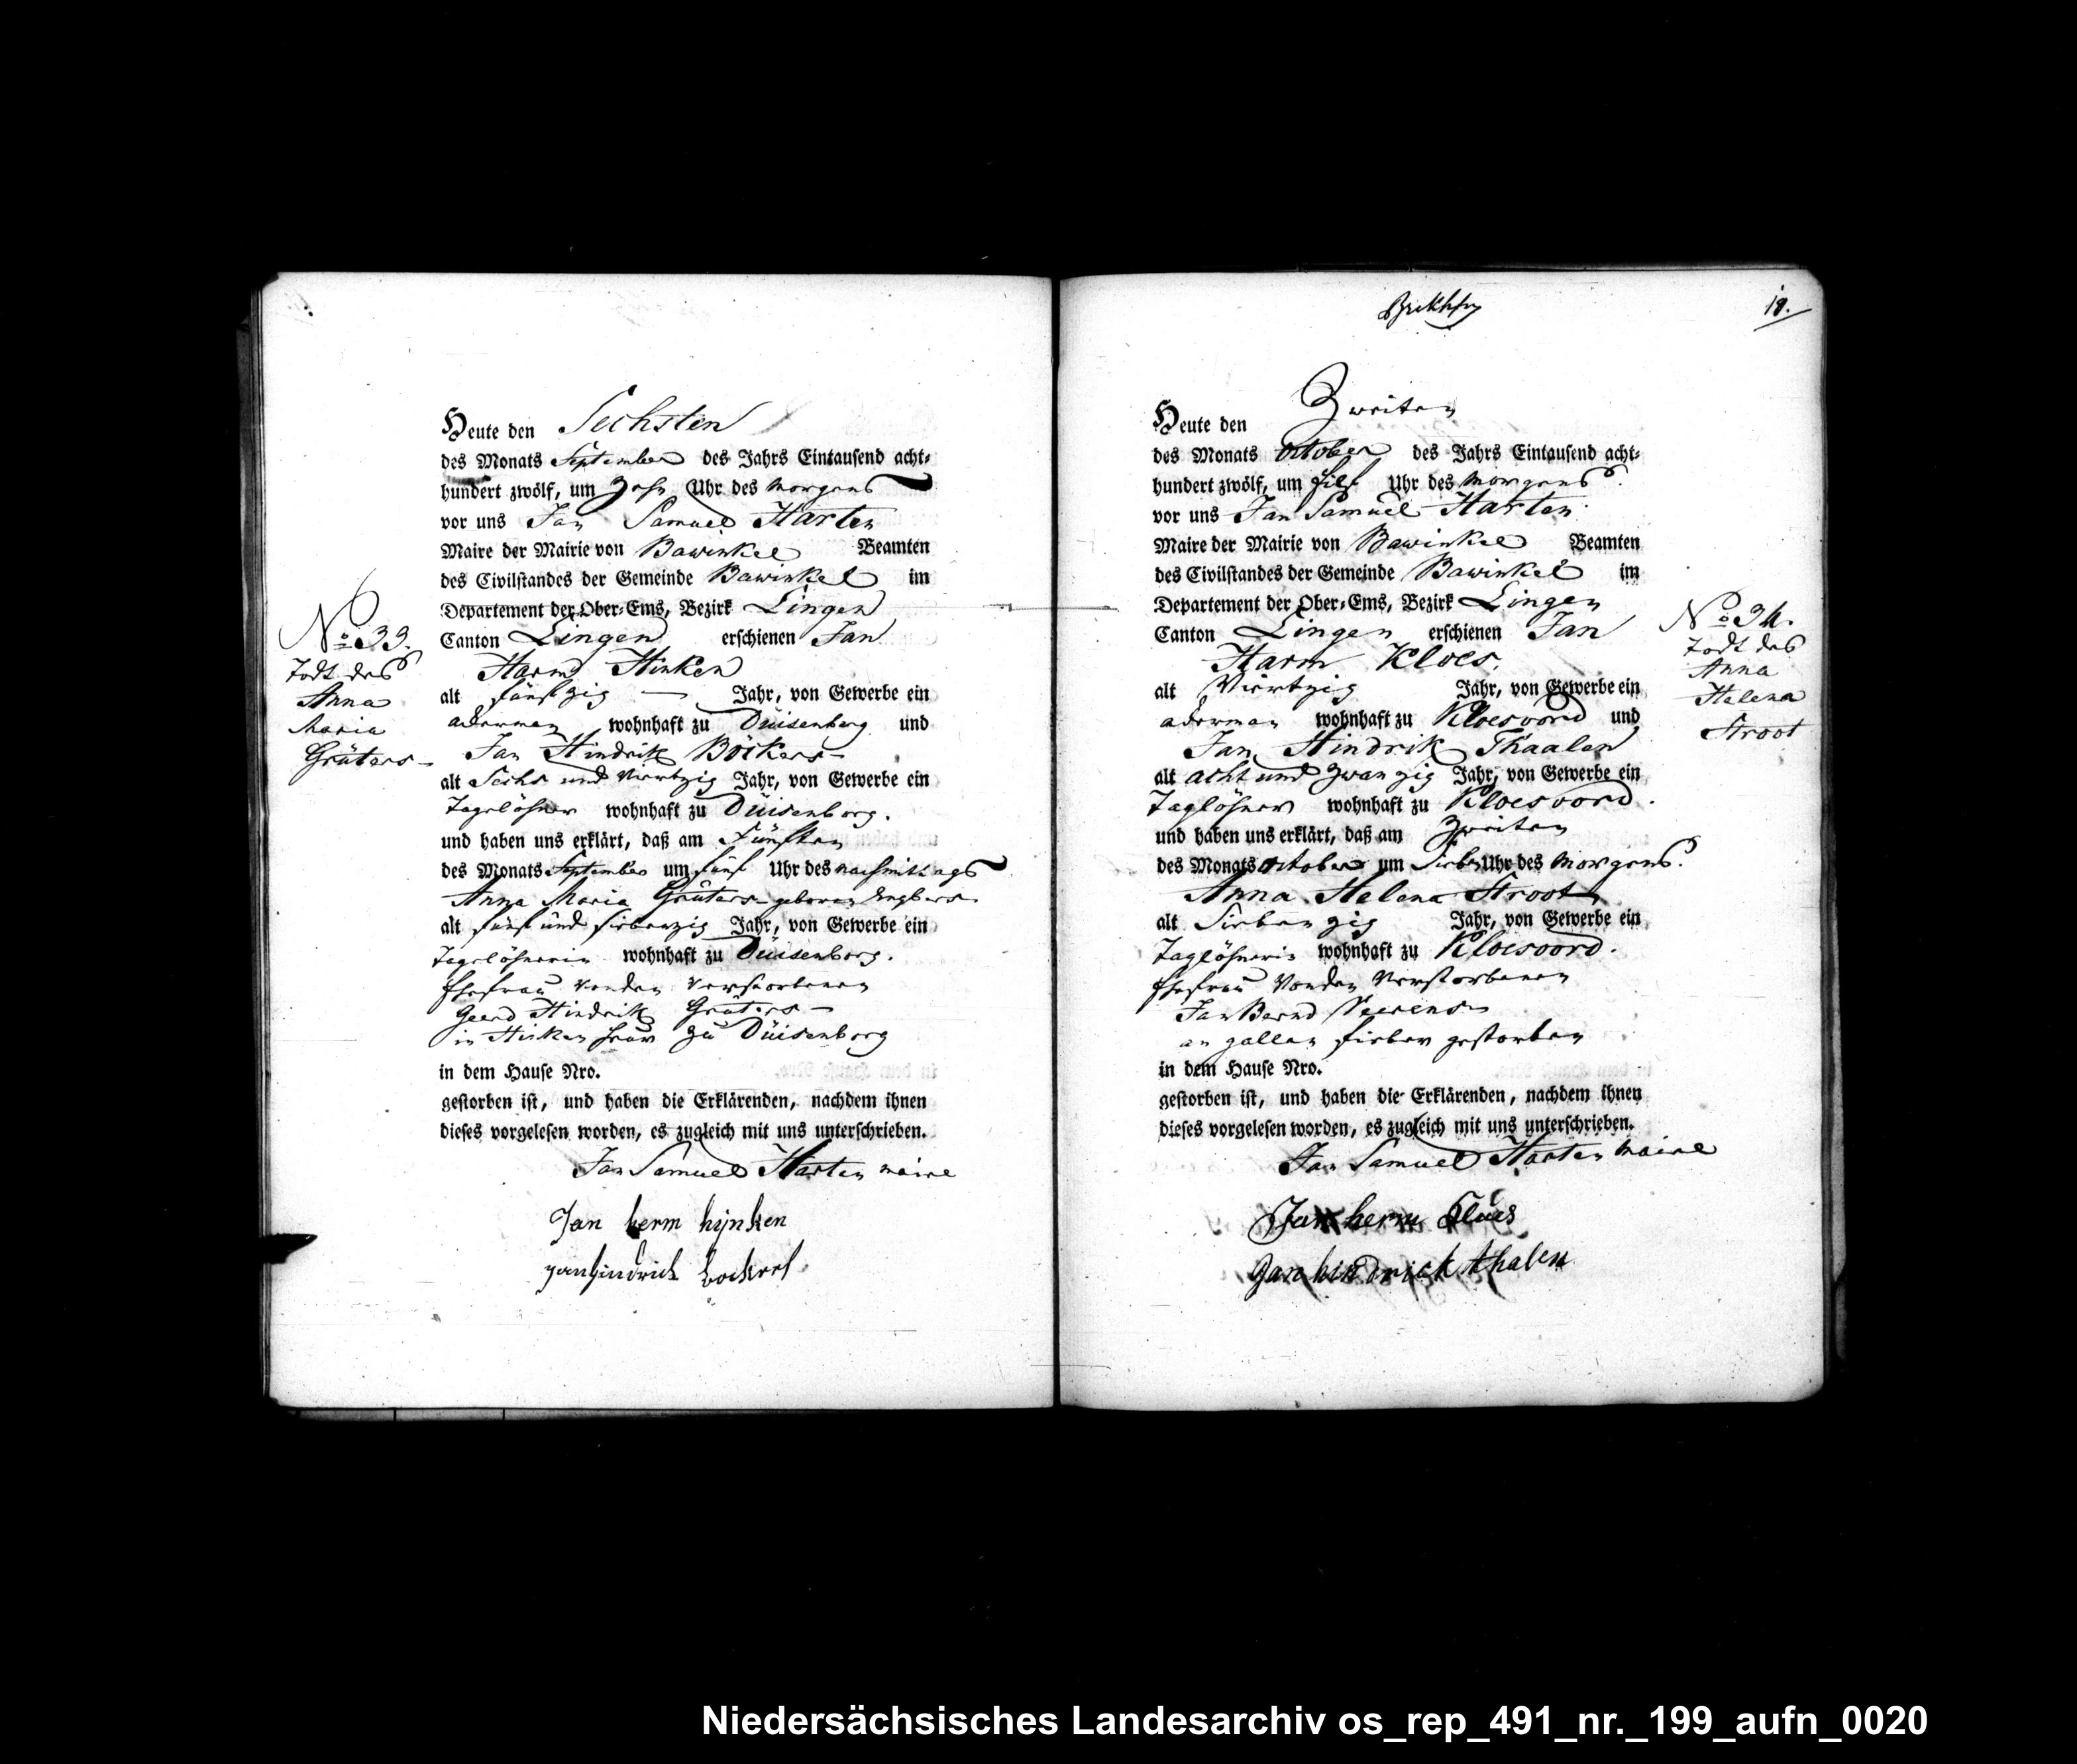 No 33.
Todt des
Anna
Maria
Grüters
Heute den Sechsten
des Monats September des Jahrs Eintausend acht-
hundert zwölf, um Zehn Uhr des Morgens
vor uns Jan Samuel Harten
Maire der Mairie von Bawinkel Beamten
des Civilstandes der Gemeinde Bawinkel im
Departement der Ober-Ems, Bezirk Lingen
Canton Lingen erschienen Jan
Harm Hinken
alt fünfzig Jahr, von Gewerbe ein
ackerman wohnhaft zu Duisenberg und
Jan Hindrik Böckers
alt Sechs und Viertzig Jahr, von Gewerbe ein
Tagelöhner wohnhaft zu Duisenborg.
und haben uns erklärt, daß am Fünften
des Monats September um fünf Uhr des nachmittags
Anna Maria Grüters geboren Engbers
alt fünf und siebenzig Jahr, von Gewerbe ein
Tagelöhnerin wohnhaft zu Duisenborg.
Ehefrau von den Verstorbenen
Geerd Hindrik Grüters
in Hinken haus zu Duisenborg
in dem Hause Nro.
gestorben ist, und haben die Erklärenden, nachdem ihnen
dieses vorgelesen worden, es zugleich mit uns unterschrieben.
Jan Samuel Harten maire
Jan herm hijnken
jan hindrick bockers
18.
Heute den Zweiten
des Monats October des Jahrs Eintausend acht-
hundert zwölf, um Eilf Uhr des Morgens.
vor uns Jan Samuel Harten
Maire der Mairie von Bawinkel Beamten
des Civilstandes der Gemeinde Bawinkel im
Departement der Ober-Ems, Bezirk Lingen
Canton Lingen erschienen Jan
Harm Kloes.
alt Viertzig Jahr, von Gewerbe ein
ackerman wohnhaft zu Kloesoord und
Jan Hindrik Thaalen
alt acht und zwanzig Jahr, von Gewerbe ein
Taglöhner wohnhaft zu Kloesoord.
und haben uns erklärt, daß am Zweiten
des Monats October um Sieben Uhr des Morgens.
Anna Helena Stroot
alt Siebenzig Jahr, von Gewerbe ein
Taglöhnerin wohnhaft zu Kloesoord.
Ehefrau Von den Verstorbenen
Jan Bernd
an gallen fieber gestorben
in dem Hause Nro.
gestorben ist, und haben die Erklärenden, nachdem ihnen
dieses vorgelesen worden, es zugleich mit uns unterschrieben.
Jan Samuel Harten maire
Jan herm Kloes
Jan hindrick thalen
No 34.
Todt des
Anna
Helena
Stroot
Niedersächsisches Landesarchiv os_rep_491_nr._199_aufn_0020